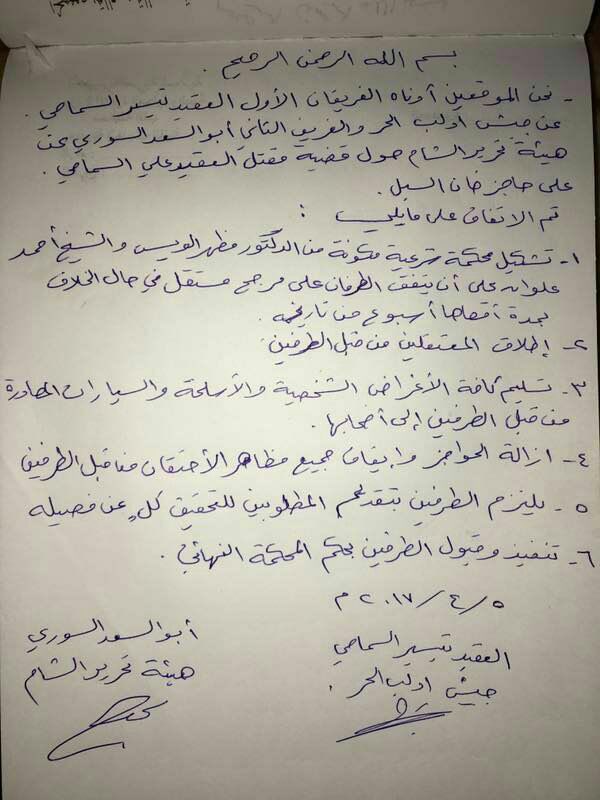 بسم الله الرحمن الرحيم .
- نحن الموقعين أدناه الفريقان الأول العقيد تيسير السماحي .
عن جيش إدلب الحر والفريق الثاني أبو السعد السوري عن
هيئة تحرير الشام حول قضية مقتل العقيد علي السماحي .
على حاجز خان السبل .
تم الاتفاق على مايلي :
١- تشكيل محكمة شرعية مكونة من الدكتور مظهر الويس والشيخ أحمد
علوان على أن يتفق الطرفان على مرجح مستقل في حال الخلاف
بمدة أقصاها أسبوع من تاريخه .
٢- إطلاق المعتقلين من قبل الطرفين
٣- تسليم كافة الأغراض الشخصية والأسلحة والسيارات المصادرة
من قبل الطرفين إلى أصحابها .
٤- ازالة الحواجز وإيقاف جميع مظاهر الأحتقان من قبل الطرفين
٥- يلتزم الطرفين بتقديم المطلوبين للتحقيق كلٍ عن فصيله
٦- تنفيذ وقبول الطرفين بحكم المحكمة النهائي .
٥/٤/٢٠١٧ م
العقيد تيسير السماحي
جيش إدلب الحر .
أبو السعد السوري
هيئة تحرير الشام